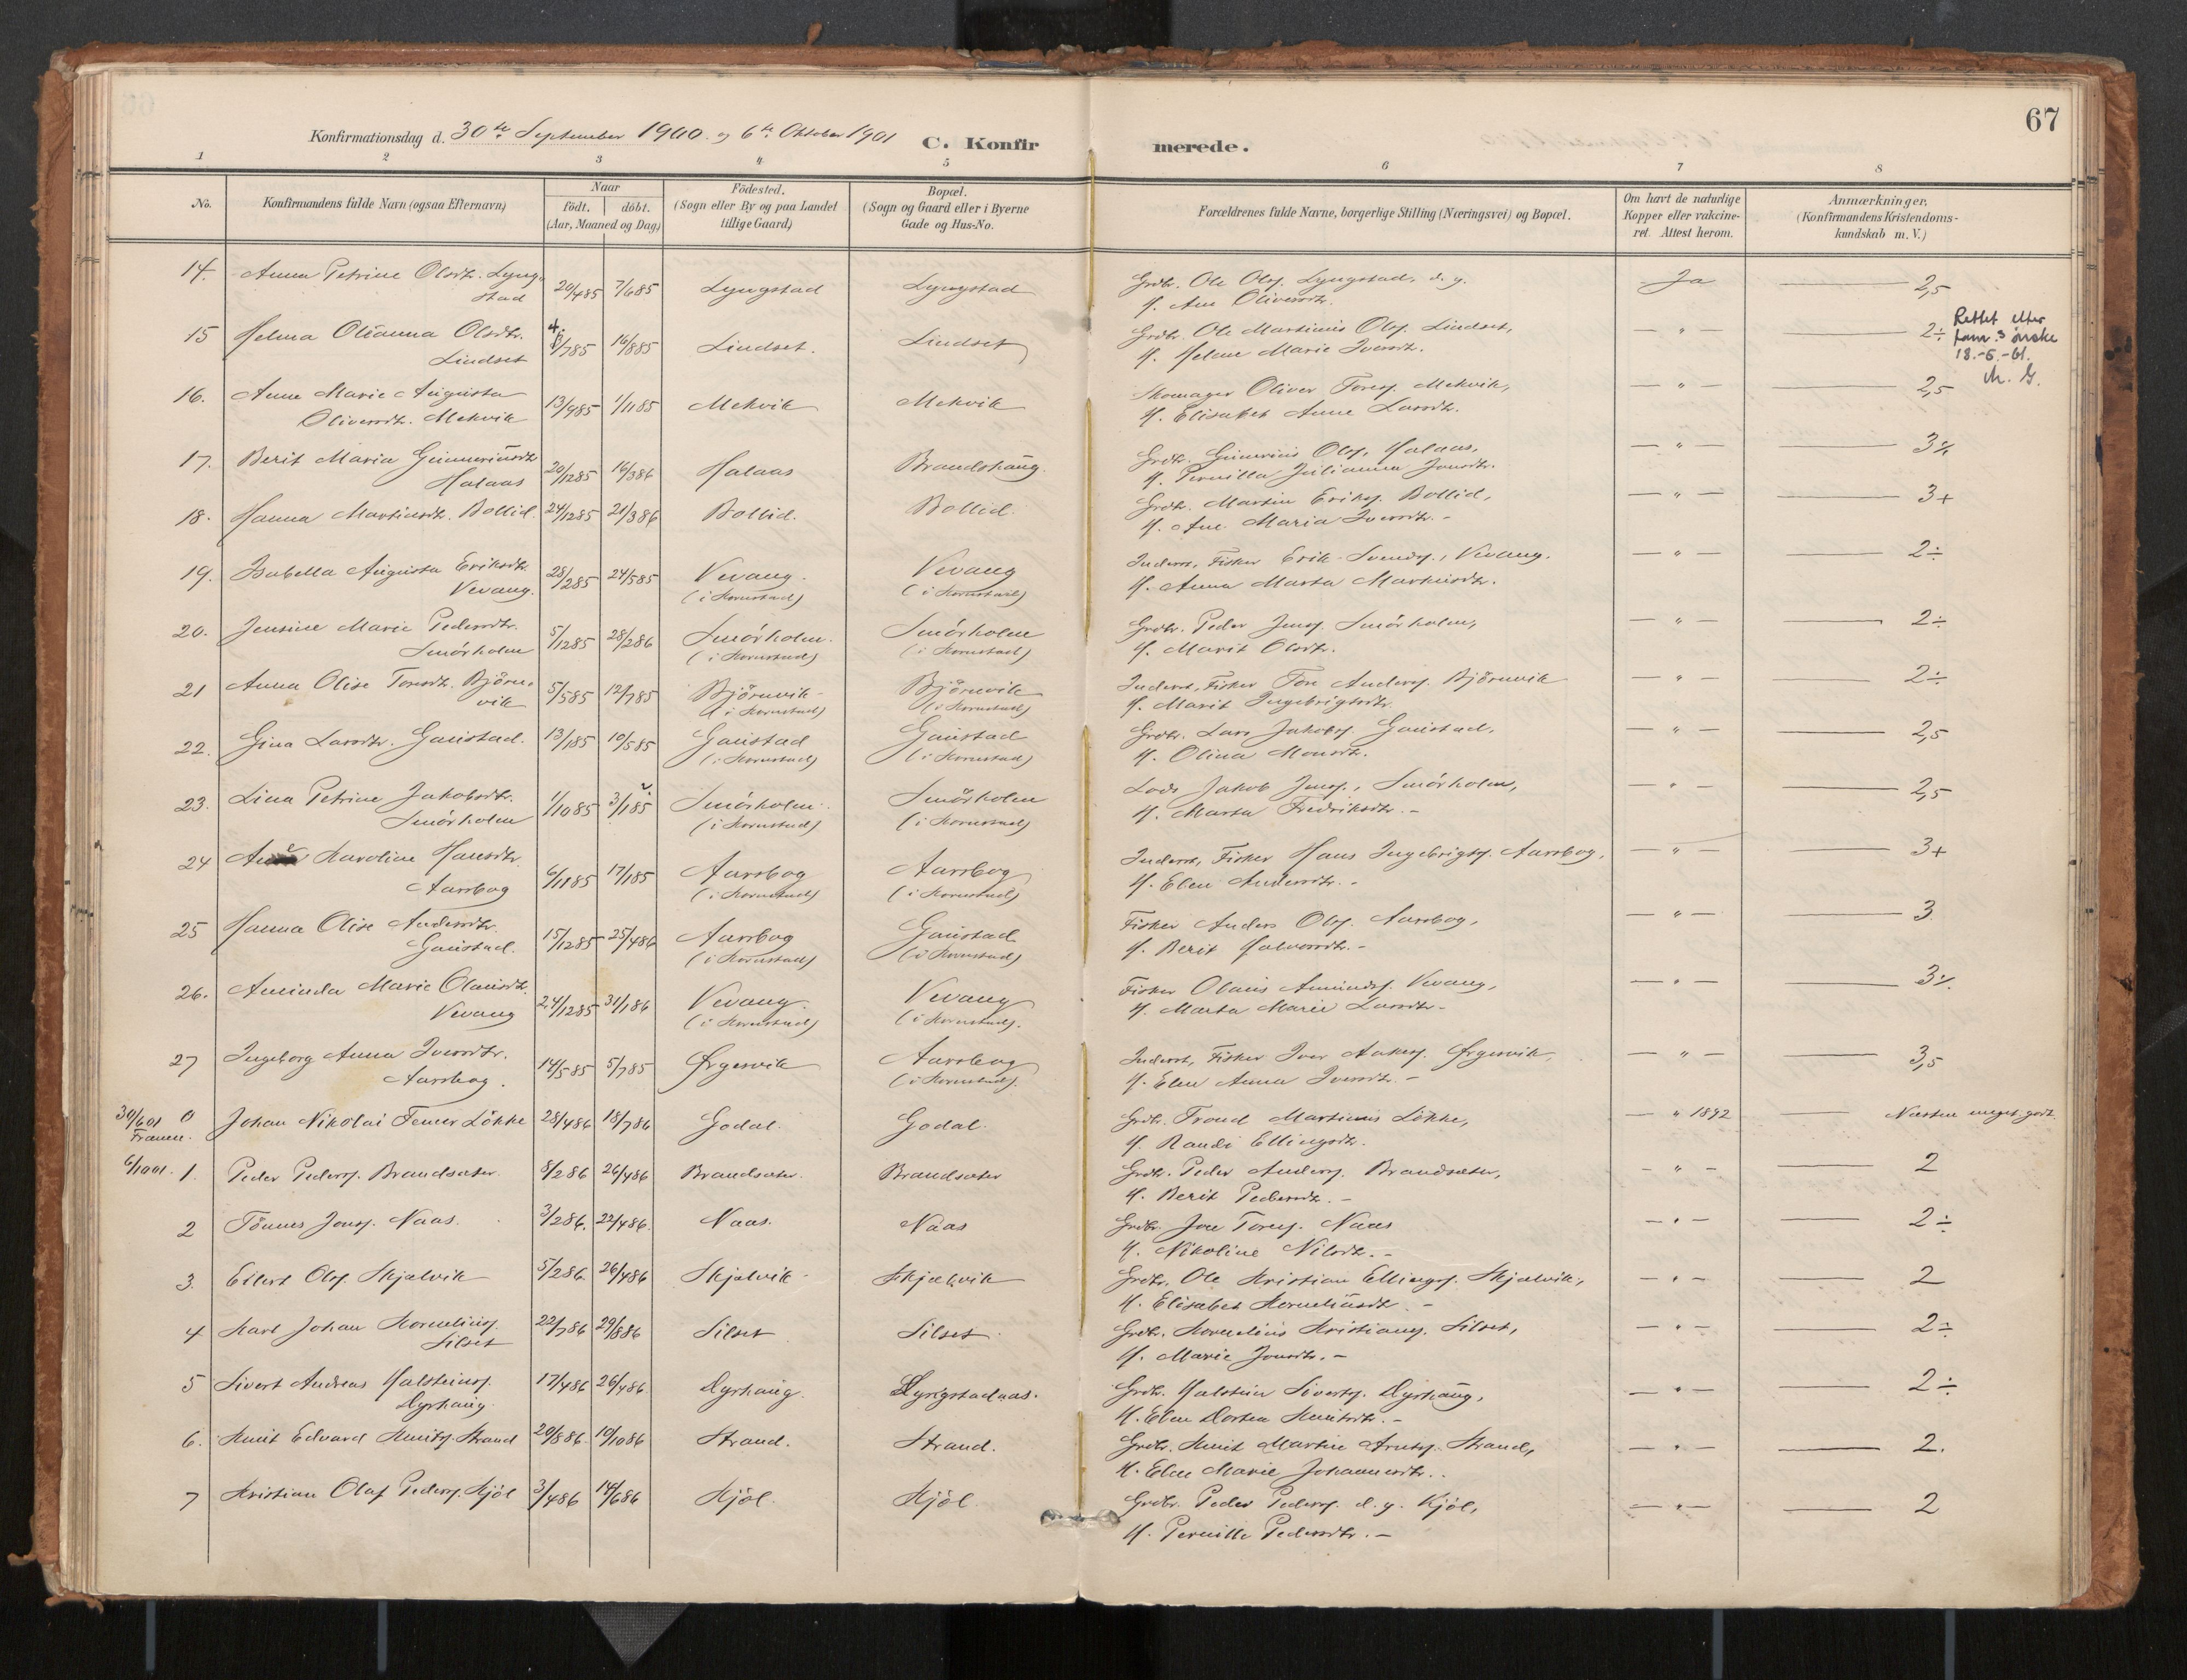 67
Konfirmationsdag d. 30te September 1900. og 6te Oktober 1901
C. Konfirmerede.
1 2 3 4 5 6 7 8
No.
Konfirmandens fulde Navn (ogsaa Efternavn)
Naar
födt. döbt.
(Aar, Maaned og Dag)
Födested.
(Sogn eller By og paa Landet
tillige Gaard)
Bopæl.
(Sogn og Gaard eller i Byerne
Gade og Hus-No.
Forældrenes fulde Navne, borgerlige Stilling (Næringsvei) og Bopæl.
Om havt de naturlige
Kopper eller vakcine-
ret. Attest herom.
Anmærkninger.
(Konfirmandens Kristendoms-
kundskab m. V.)
14. Anna Petrine Olsdtr. Lyng- 20/4 85 7/6 85 Lyngstad Lyngstad Grdbr. Ole Ols. Lyngstad, d. y. Ja 2,5
stad H. Ane Oliversdtr.
15 Helma Olianna Olsdtr. 4/7 85 16/8 85 Lindset. Lindset Grdbr. Ole Martinus Ols. Lindset, — " — 2÷ Rettet etter
Lindset H. Helene Marie Iversdtr. fam.s ønske
18.-5.-61.
M. G.
16. Anne Marie Augusta 13/9 85 1/11 85 Mekvik Mekvik Skomager Oliver Tores. Mekvik, — " — 2,5
Oliversdtr. Mekvik H. Elisabet Anne Larsdtr.
17. Berit Maria Gunneriusdtr. 20/12 85 16/3 86 Halaas Brandshaug. Grdbr. Gunerius Ols. Halaas, — " — 3⁒
Halaas H. Pernilla Julianna Jonsdtr.
18. Hanna Martinsdtr. Bollid. 24/12 85 21/3 86 Bollid. Bollid. Grdbr. Martin Eriks. Bollid, — " — 3+
H. Ane Maria Iversdtr. -
19. Isabella Augusta Eriksdtr. 28/2 85 24/5 85 Vevang. Vevang Inderst, Fisker Erik Svends., Vevang. — " — 2÷
Vevang. (i Kornstad) (i Kornstad) H. Anna Marta Martinsdtr.
20. Jensine Marie Pedersdtr. 5/12 85 28/2 86 Smörholm. Smörholm Grdbr. Peder Jens. Smörholm, — " — 2÷
Smörholm (i Kornstad) (i Kornstad) H. Marit Olsdtr.
21 Anna Olise Toresdtr. Björn- 5/5 85 12/7 85 Björnvik Björnvik Inderst, Fisker Tore Anders. Björnvik — " — 2÷
vik (i Kornstad) (i Kornstad) H. Marit Ingebrigtsdtr.
22. Gina Larsdtr. Gaustad. 13/1 85 10/5 85 Gaustad Gaustad Grdbr. Lars Jakobs. Gaustad, — " — 2,5
(i Kornstad) (i Kornstad) H. Olina Monsdtr.
23. Lina Petrine Jakobsdtr. 1/10 85 3/1 85 Smörholm. Smörholm Lods Jakob Jens., Smörholm, — " — 2,5
Smörholm (i Kornstad) (i Kornstad) H. Marta Fredriksdtr. -
24 Karoline Hansdtr. 6/11 85 17/1 85 Aarsbog Aarsbog Inderst, Fisker Hans Ingebrigts. Aarsbog, — " — 3+
Aarsbog (i Kornstad) (i Kornstad) H. Elen Andersdtr. -
25 Hanna Olise Andersdtr. 15/12 85 25/4 86 Aarsbog Gaustad Fisker Anders Ols. Aarsbog, — " — 3
Gaustad. (i Kornstad) (i Kornstad) H. Berit Halvorsdtr. -
26. Aminda Marie Olausdtr. 24/12 85 31/1 86 Vevang. Vevang Fisker Olaus Amunds. Vevang, — " — 3⁒
Vevang (i Kornstad) (i Kornstad). H. Marta Marie Larsdtr. -
27 Ingeborg Anna Iversdtr. 14/5 85 5/7 85 Ørgersvik Aarsbog Inderst, Fisker Iver Ørgersvik, — " — 3,5
Aarsbog. (i Kornstad). H. Elen Anna Iversdtr. -
30/6 01 0 Johan Nikolai Løkke 28/4 86 18/7 86 Godal. Godal. Grdbr. Trond Martinus Løkke, — " 1892 Næsten meget godt.
Frænen. H. Randi Ellingsdtr.
6/10 01. 1. Peder Peders. Brandsæter. 8/2 86 26/4 86 Brandsæter. Brandsæter Grdbr. Peder Anders. Brandsæter, — " — 2
H. Berit Pedersdtr. -
2 Tönnes Jons. Naas. 3/2 86. 22/4 86. Naas. Naas Grdbr. Jon Tores. Naas — " — 2÷
H. Nikoline Nilsdtr. -
3. Eilert Ols. Skjælvik 5/2 86. 26/4 86 Skjælvik Skjælvik Grdbr. Ole Kristian Ellings. Skjælvik, — " — 2
H. Elisabet Korneliusdtr. -
4 Karl Johan Kornelius. 22/7 86 29/8 86 Silset Silset Grdbr. Kornelius Kristians. Silset, — " — 2÷
Silset H. Marie Jonsdtr. -
5 Sivert Andreas Halsteins. 17/4 86 26/4 86. Dyrhaug. Lyngstadaas. Grdbr. Halstein Siverts. Dyrhaug, — " — 2÷
Dyrhaug. H. Elen Dortea Knutsdtr. -
6. Knut Edvard Knuts. Strand 20/8 86. 10/10 86 Strand. Strand. Grdbr. Knut Martin Strand, — " — 2.
H. Elen Marie Johannesdtr. .
7 Kristian Olaf Peders. Kjöl 3/4 86 14/6 86 Kjöl. Kjöl. Grdbr. Peder Peders. d. y. Kjöl, — " — 2
H. Pernille Pedersdtr. -